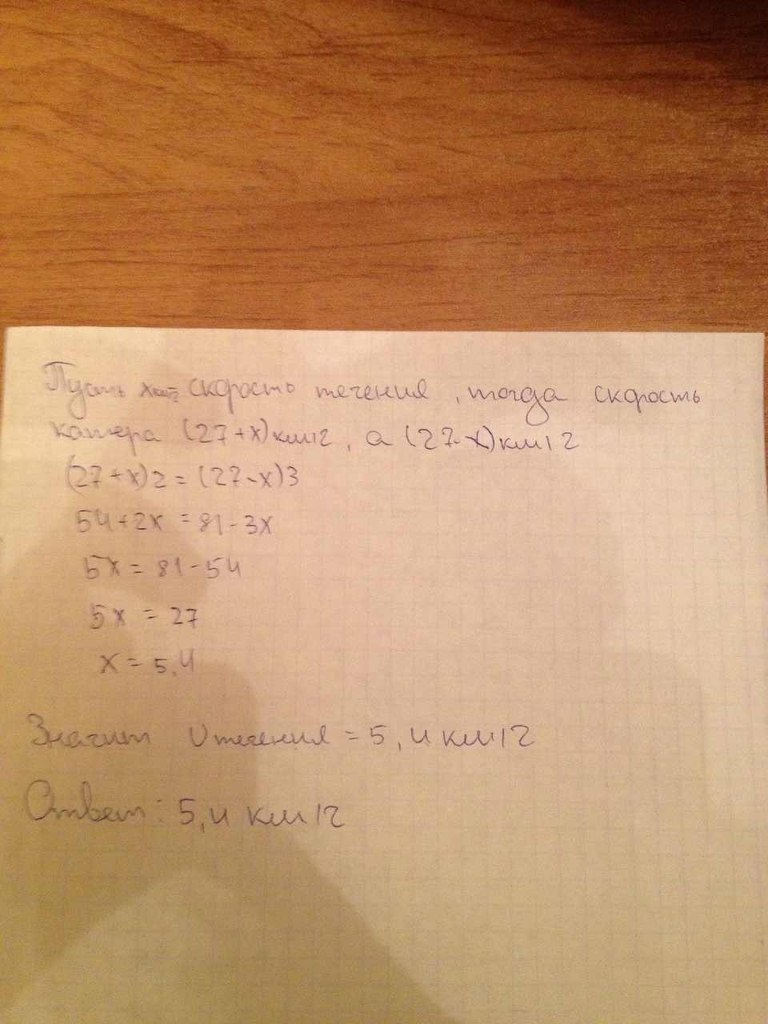 Пусть x км/ч скорость течения, тогда скорость
катера (27+x)км/ч, а (27-x)км/ч
(27+x)2=(27-x)3
54+2x=81-3x
5x=81-54
5x=27
x=5,4
Значит υ течения=5,4 км/ч
Ответ: 5,4 км/ч